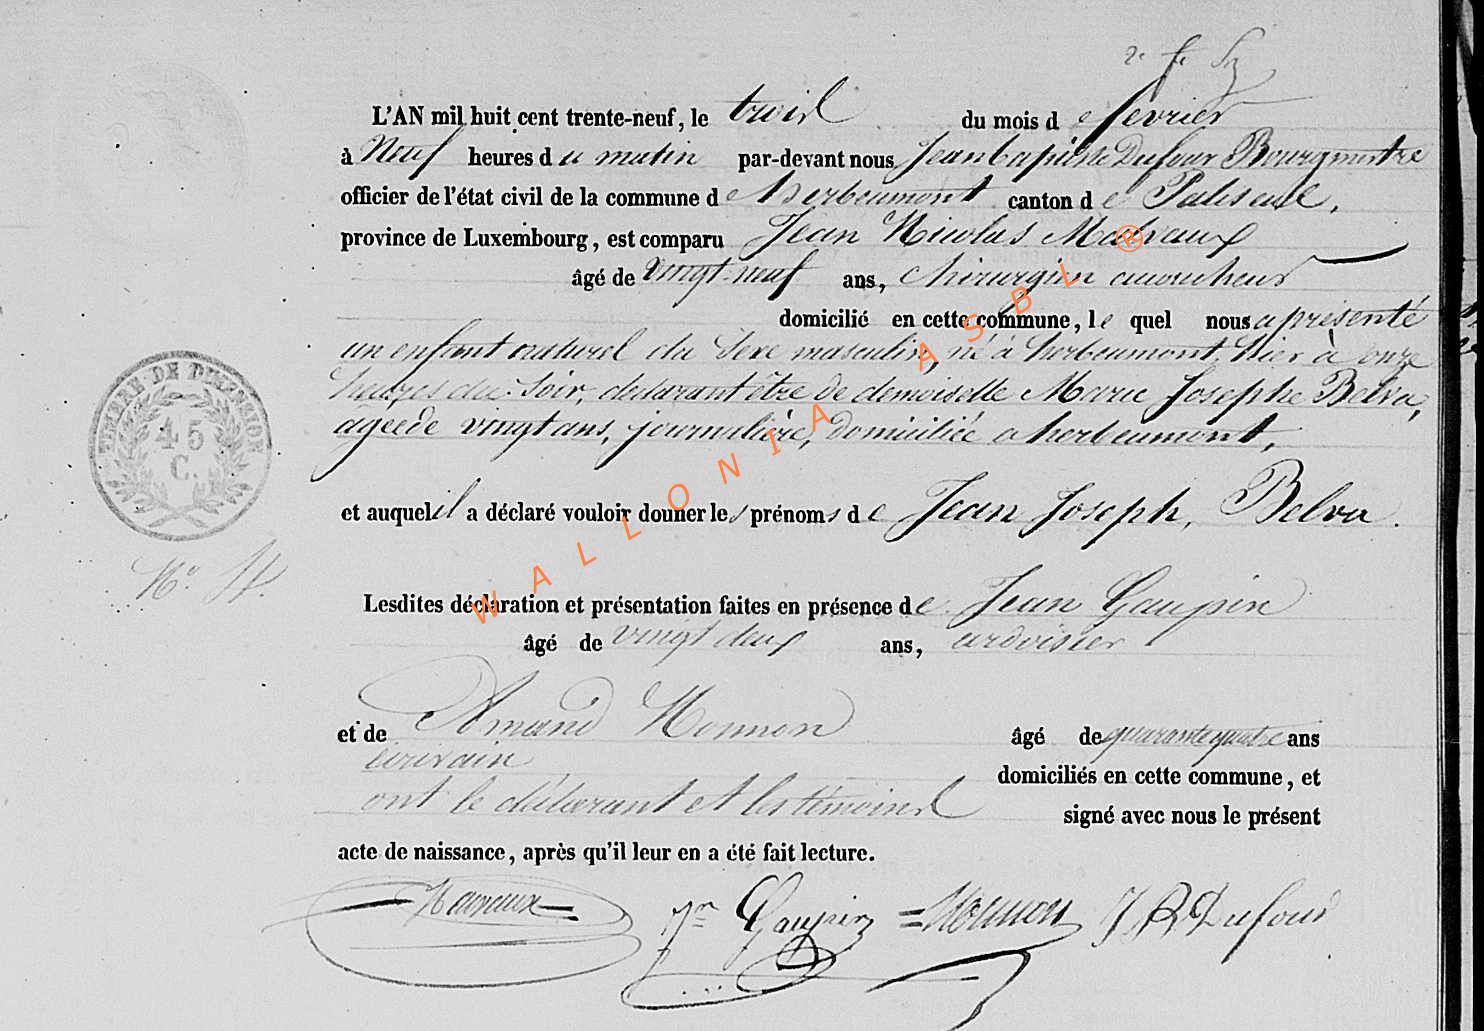 L'AN mil huit cent trente-neuf, le trois du mois de fevrier
à Neuf heures du matin par-devant nous Jean Baptiste Dufour Bourgmestre
officier de l'état civil de la commune de herbeumont canton de Paliseul,
province de Luxembourg, est comparu Jean Nicolas
âgé de vingt-neuf ans, chirurgien accoucheur
domicilié en cette commune, le quel nous a présenté
un enfant naturel du sexe masculin, né à herbeumont, hier à onze
heures du soir, déclarant être de demoiselle Marie Josephe Belva,
agée de vingt ans, journalière, domiciliée a herbeumont,
TIMBRE DE DIMENSION
45
C.
et auquel il a déclaré vouloir donner les prénoms de Jean Joseph, Belva.
No
Lesdites déclaration et présentation faites en présence de Jean Gaupin
âgé de vingt deux ans, ardoisier
et de Amand Monnon âgé de quarante quatre ans
écrivain
domiciliés en cette commune, et
ont le déclarant et les témoins
signé avec nous le présent
acte de naissance, après qu'il leur en a été fait lecture.
Jn Gaupin Monnon J B Dufour
WALLONIA ASBL ®